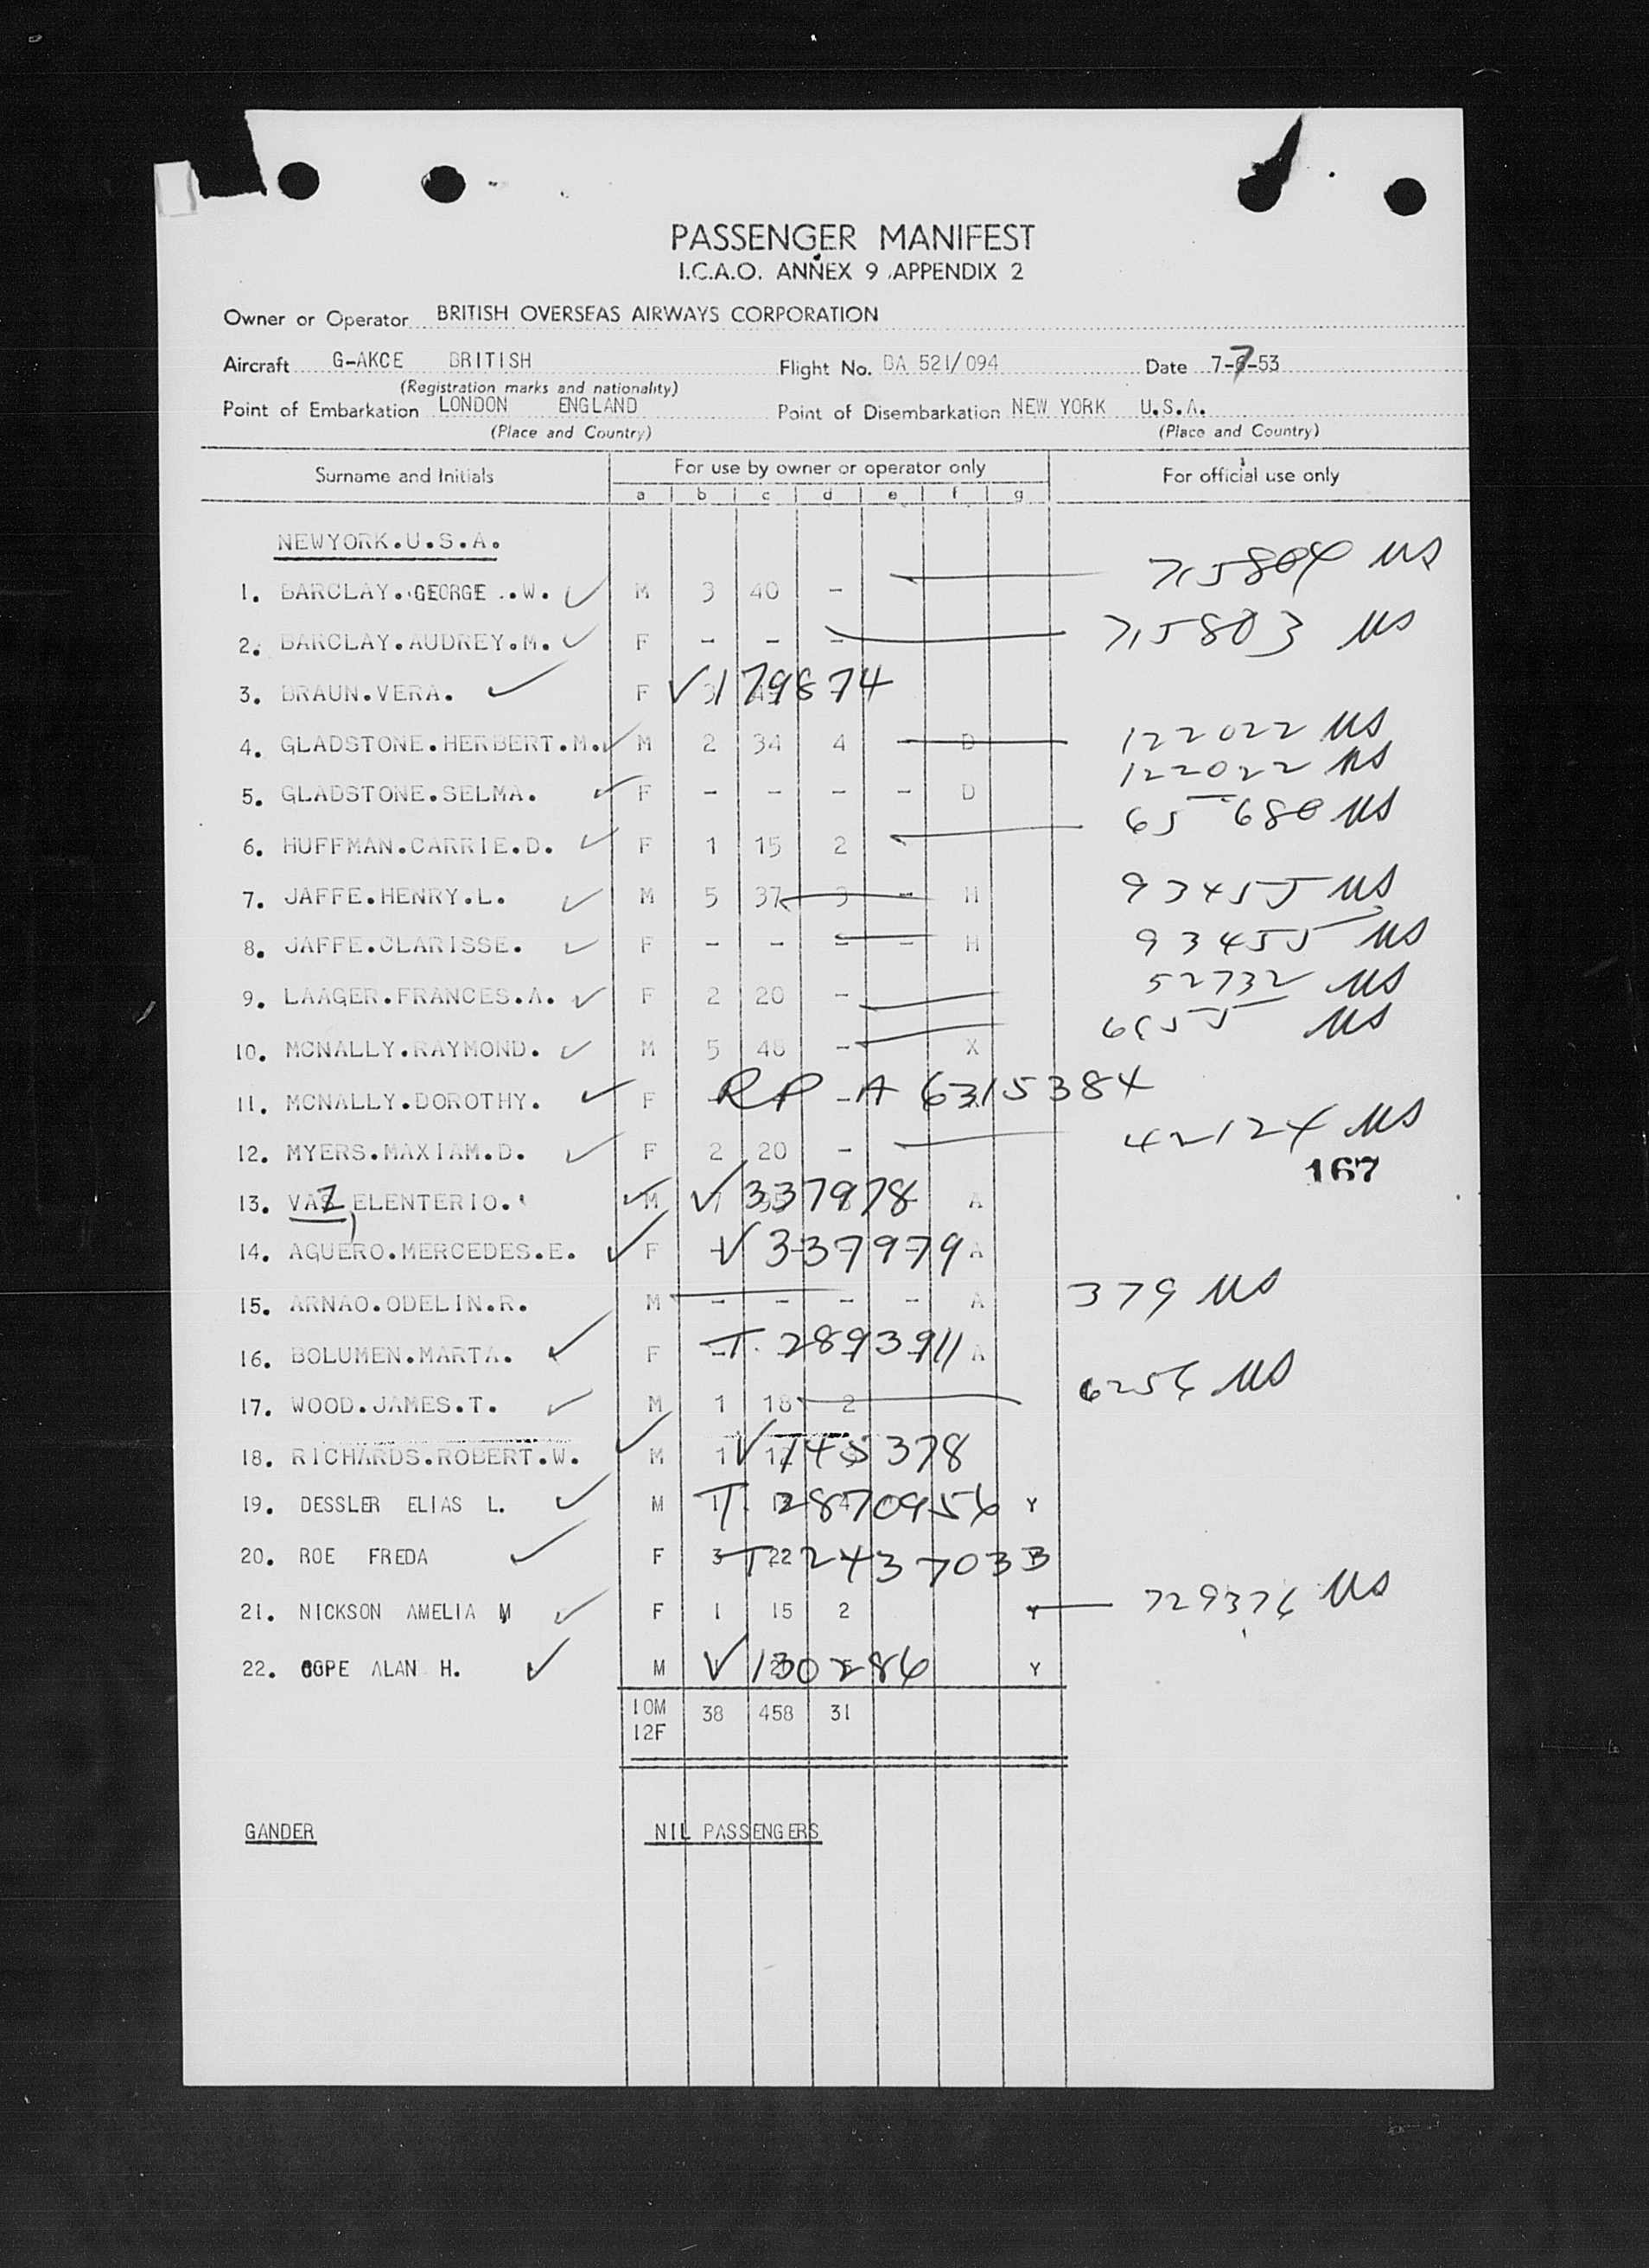 PASSENGER MANIFEST
I.C.A.O. ANNEX 9 APPENDIX 2
Owner or Operator BRITISH OVERSEAS AIRWAYS CORPORATION
Aircraft G-AKCE BRITISH Flight No. BA 521/094 Date 7-7-53
(Registration marks and nationality)
Point of Embarkation LONDON ENGLAND Point of Disembarkation NEW YORK U.S.A.
(Place and Country) (Place and Country)
Surname and Initials For use by owner or operator only For official use only
a b c d e f g
NEWYORK.U.S.A.
1. BARCLAY.GEORGE.W. M 3 40 - 715804 US
2. BARCLAY.AUDREY.M. F - - - 715803 US
3. BRAUN.VERA. F V 179874
4. GLADSTONE.HERBERT.M. M 2 34 4 - D 122022 US
5. GLADSTONE.SELMA. F - - - - D 122022 US
6. HUFFMAN.CARRIE.D. F 1 15 2 65680 US
7. JAFFE.HENRY.L. M 5 37 3 - H 93455 US
8. JAFFE.CLARISSE. F - - - - H 93455 US
9. LAAGER.FRANCES.A. F 2 20 - 52732 US
10. MCNALLY.RAYMOND. M 5 48 - X US
11. MCNALLY.DOROTHY. F RP A 6315384
12. MYERS.MAXIAM.D. F 2 20 - 42124 US
167
13. VAZ ELENTERIO. M V 337978 A
14. AGUERO.MERCEDES.E. F V 337979 A
15. ARNAO.ODELIN.R. M - - - - A 379 US
16. BOLUMEN.MARTA. F T. 2893911 A
17. WOOD.JAMES.T. M 1 18 2 6256 US
18. RICHARDS.ROBERT.W. M 1 V 145378
19. DESSLER ELIAS L. M T. 2870956 Y
20. ROE FREDA F 3 22 T 2437033
21. NICKSON AMELIA M F 1 15 2 Y 729376 US
22. COPE ALAN H. M V 130286 Y
10M 38 458 31
12F
GANDER NIL PASSENGERS